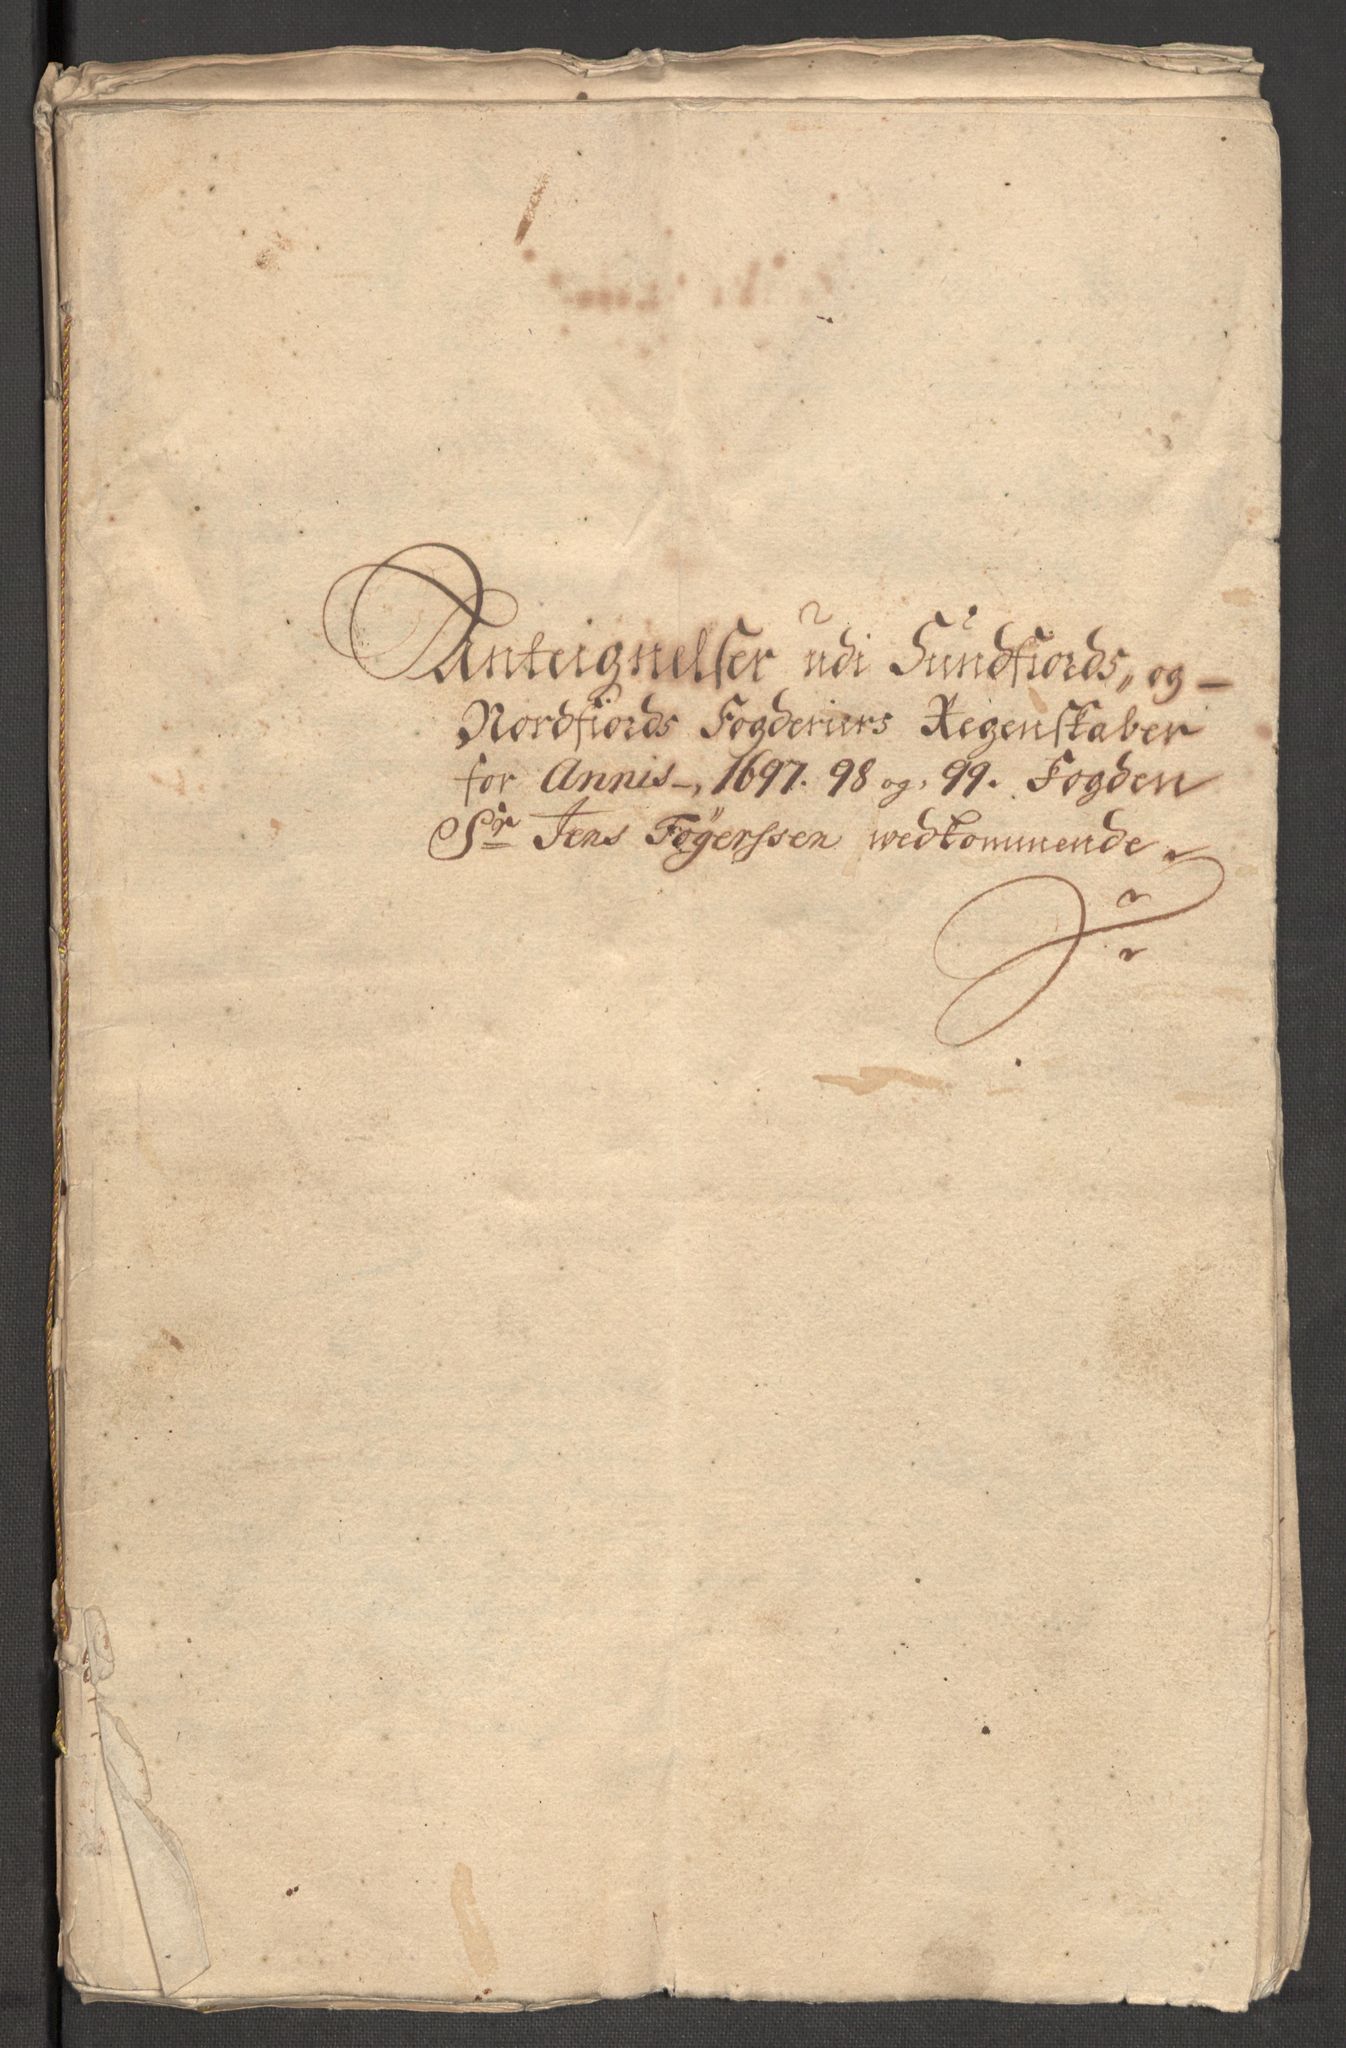 Anteignelser udi Sundfiords, og
Nordfiords Fogderiers Regenskaber
for Annis, 1697. 98 og, 99. Fogden
Sr Jens Föyerssen wedkommende.